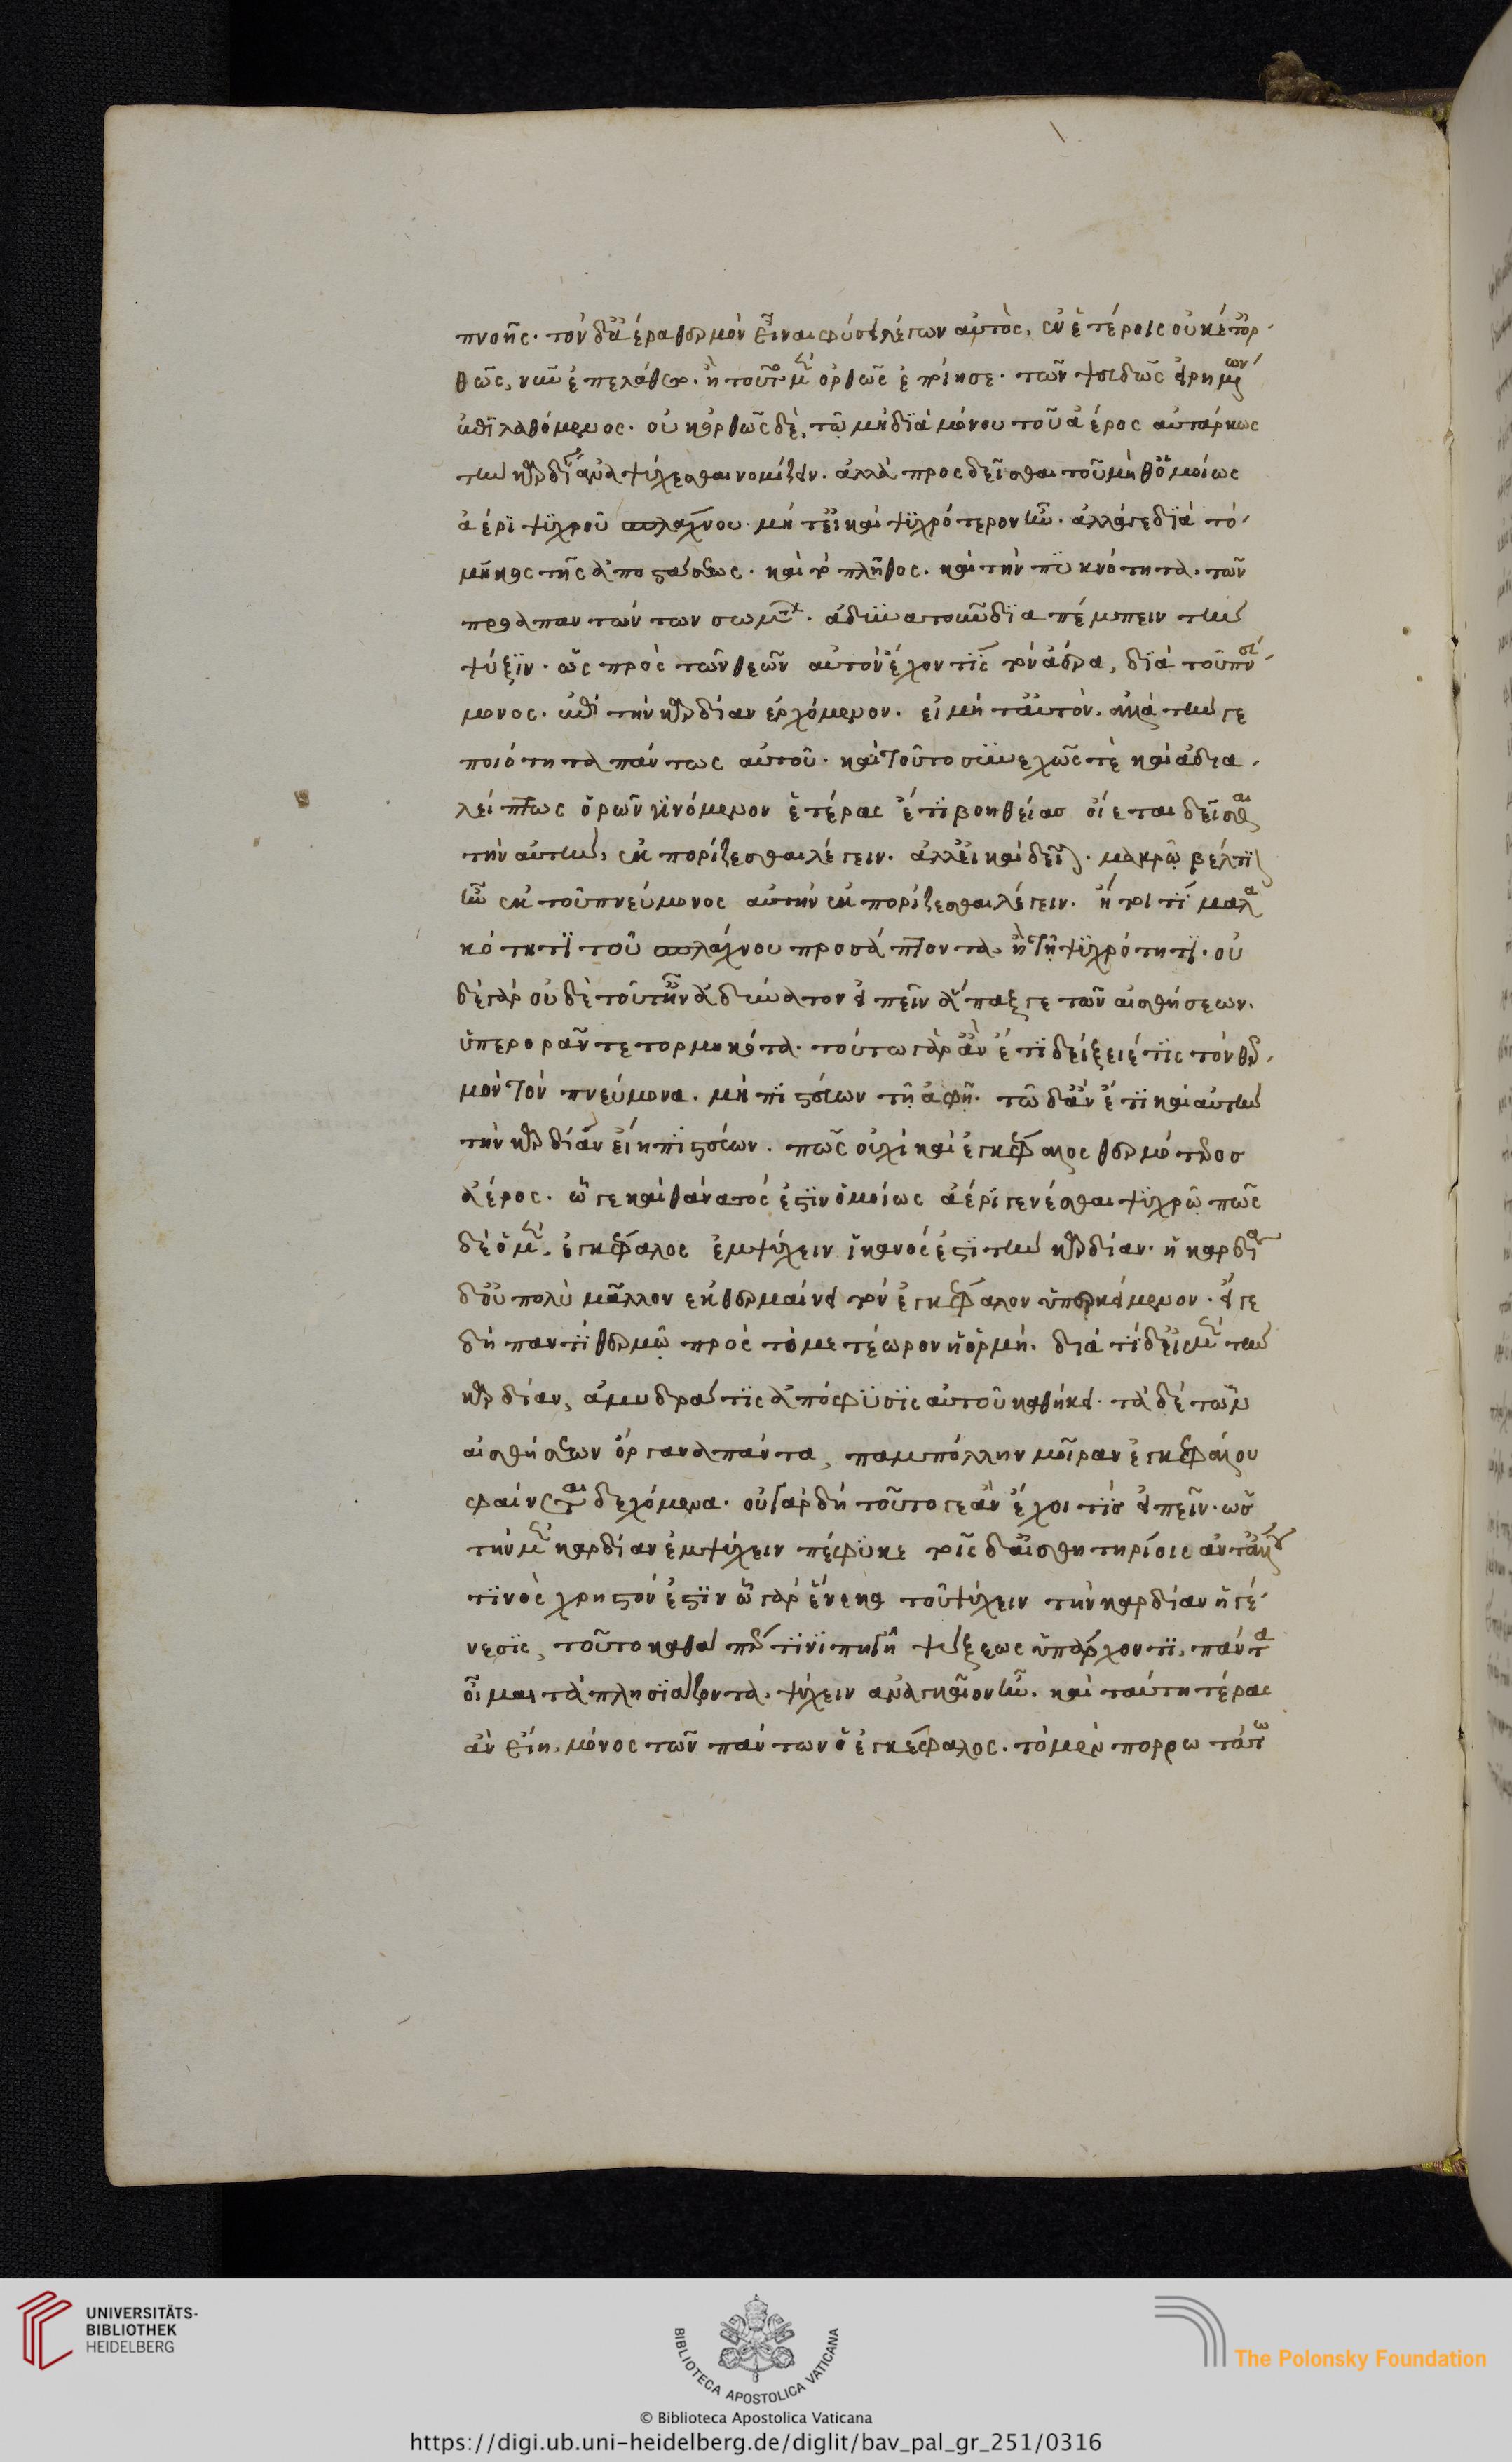 πνοῆς. τὸν δ' ἀέρα θερμὸν εἶναι φύσει λέγων αὐτὸς, ἐν ἑτέροις οὐκέτ' ὀρ-
θῶς, νῦν ἐπελάθετο. ἢ τοῦτο μὲν ὀρθῶς ἐποίησε. τῶν ψευδῶς εἰρημένων
ἐπιλαθόμενος. οὐκ ὀρθῶς δὲ, τῷ μὴ διὰ μόνου τοῦ ἀέρος αὐτάρκως
τὴν καρδίαν ἀναψύχεσθαι νομίζειν. ἀλλὰ προσδεῖσθαι τοῦ μήθ' ὁμοίως
ἀέρι ψυχροῦ σπλάγχνου. μήτ' εἰ καὶ ψυχρότερον ἦν. ἀλλά γε διὰ τὸ
μῆκος τῆς ἀποστάσεως. καὶ τὸ πλῆθος. καὶ τὴν πυκνότητα. τῶν
προαπαντώντων σωμάτων. ἀδυνάτου διαπέμπειν τὴν
ψύξιν. ὡς πρὸς τῶν θεῶν αὐτὸν ἔχοντι τὸν ἀέρα, διὰ τοῦ πνεύ-
μονος. ἐπὶ τὴν καρδίαν ἐρχόμενον. εἰ μὴ ταὐτὸν. ἀλλὰ τήν γε
ποιότητα πάντως αὐτοῦ. καὶ τοῦτο συνεχῶς τὲ καὶ ἀδια-
λείπτως ὁρῶν γινόμενον ἑτέρας ἔτι βοηθείας οἴεται δεῖσθαι
τὴν αὐτὴν, ἐκπορίζεσθαι λέγειν. ἀλλ' εἰ καὶ δεῖται. μακρῷ βέλτιον
ἦν ἐκ τοῦ πνεύμονος αὐτὴν ἐκπορίζεσθαι λέγειν. ἤτοι τῇ μαλα-
κότητι τοῦ σπλάγχνου προσάπτοντα. ἢ τῇ ψυχρότητι. οὐ
δὲ γὰρ οὐδὲ τοῦτ' ἦν ἀδύνατον εἰπεῖν ἅπαξ γε τῶν αἰσθήσεων.
ὑπερορᾶν τετορμηκότα. τούτω γὰρ ἂν ἔτι δείξειέ τις τὸν θερ-
μὸν τὸν πνεύμονα. μὴ πιστεύων τῇ ἀφῇ. τῷ δ' ἂν ἔτι καὶ αὐτὴν
τὴν καρδίαν εἴη πιστεύων. πῶς οὐχὶ καὶ ἐγκέφαλος θερμότερος
ἀέρος. ὥς γε καὶ θάνατός ἐστιν ὁμοίως ἀέρι γενέσθαι ψυχρῷ πῶς
δὲ ὁ μὲν. ἐγκέφαλος ἐμψύχειν ἱκανός ἐστι τὴν καρδίαν. ἡ καρδία
δ' οὐ πολὺ μᾶλλον ἐκθερμαίνει τὸν ἐγκέφαλον ὑπερκείμενον. εἴ γε
δὴ παντὶ θερμῷ πρὸς τὸ μετέωρον ἡ ὁρμή. διὰ τί δ' εἰς μὲν τὴν
καρδίαν, ἀμυδρά τις ἀπόφυσις αὐτοῦ καθήκει. τὰ δὲ τῶν
αἰσθήσεων ὄργανα πάντα, παμπόλλην μοῖραν ἐγκεφάλου
φαίνεται δεχόμενα. οὐ γὰρ δὴ τοῦτό γε ἂν ἔχοι τις εἰπεῖν. ὡς
τὴν μὲν καρδίαν ἐμψύχειν πέφυκε τοῖς δ' αἰσθητηρίοις ἀντ' ἄλλου
τινὸς χρηστόν ἐστιν ᾧ γὰρ ἕνεκα τοῦ ψύχειν τὴν καρδίαν ἡ γέ-
νεσις, τοῦτο καθά περ τινὶ πηγῇ ψύξεως ὑπάρχοντι, πάντα
οἶμαι τὰ πλησιάζοντα. ψύχειν ἀναγκαῖον ἦν. καὶ ταύτῃ τέρας
ἂν εἴη. μόνος τῶν πάντων ὁ ἐγκέφαλος. τὸ μὲν πορρωτάτω
UNIVERSITÄTS-
BIBLIOTHEK
HEIDELBERG
BIBLIOTECA APOSTOLICA VATICANA
The Polonsky Foundation
© Biblioteca Apostolica Vaticana
https://digi.ub.uni-heidelberg.de/diglit/bav_pal_gr_251/0316